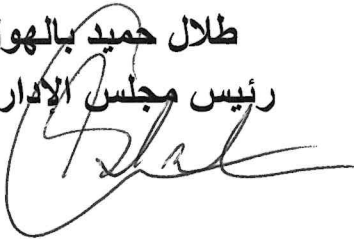 طلال حميد بالهوا
رئيس مجلس الإدار